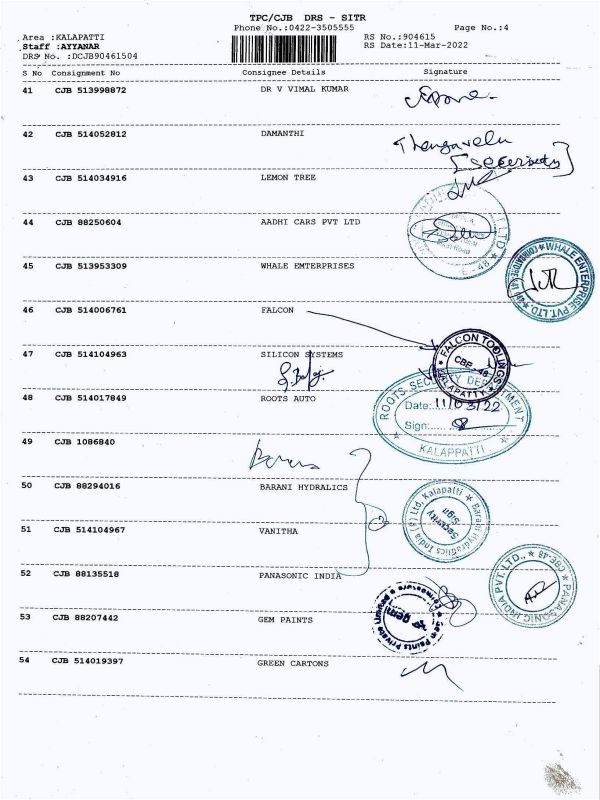 TPC/CJB DRS - SITR
Phone No.:0422-3505555 Page No.:4
Area :KALAPATTI RS No.:904615
Staff :AYYANAR RS Date:11-Mar-2022
DRS No. :DCJB90461504
S No Consignment No Consignee Details Signature
41 CJB 513998872 DR V VIMAL KUMAR
42 CJB 514052812 DAMANTHI
Thangavelu
43 CJB 514034916 LEMON TREE
44 CJB 88250604 AADHI CARS PVT LTD
45 CJB 513953309 WHALE EMTERPRISES
WHALE ENTERPRISE PVT. LTD.
46 CJB 514006761 FALCON
FALCON TOOLINGS
CBE-48
KALAPATTY
47 CJB 514104963 SILICON SYSTEMS
48 CJB 514017849 ROOTS AUTO
ROOTS SECURITY DEPARTMENT
Date: 11/03/22
Sign:
KALAPPATTI
49 CJB 1086840
50 CJB 88294016 BARANI HYDRALICS
Barani Hydraulics India (P) Ltd, Kalapatti
Security
Sign
51 CJB 514104967 VANITHA
52 CJB 88135518 PANASONIC INDIA
PANASONIC INDIA PVT. LTD., CBE-48
53 CJB 88207442 GEM PAINTS
Gem Paints Private Limited Coimbatore
gem
54 CJB 514019397 GREEN CARTONS